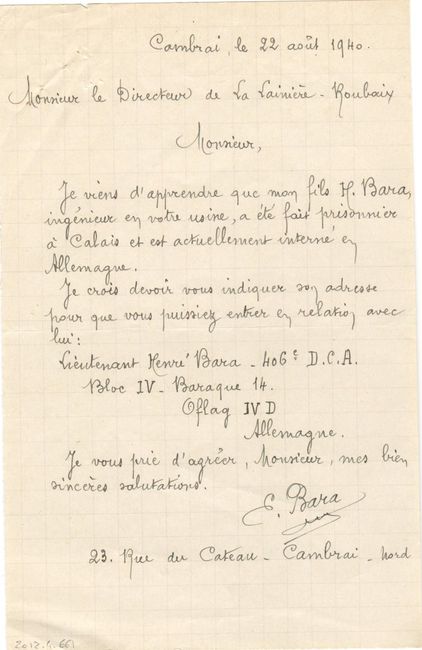 Cambrai, le 22 août 1940.
Monsieur le Directeur de La Lainière - Roubaix
Monsieur,
Je viens d'apprendre que mon fils H. Bara,
ingénieur en votre usine, a été fait prisonnier
à Calais et est actuellement interné en
Allemagne.
Je crois devoir vous indiquer son adresse
pour que vous puissiez entrer en relation avec
lui:
Lieutenant Henri Bara - 406e D.C.A.
Bloc IV - Baraque 14.
Oflag IV D
Allemagne.
Je vous prie d'agréer, Monsieur, mes bien
sincères salutations.
E. Bara
23. Rue du Cateau - Cambrai - Nord